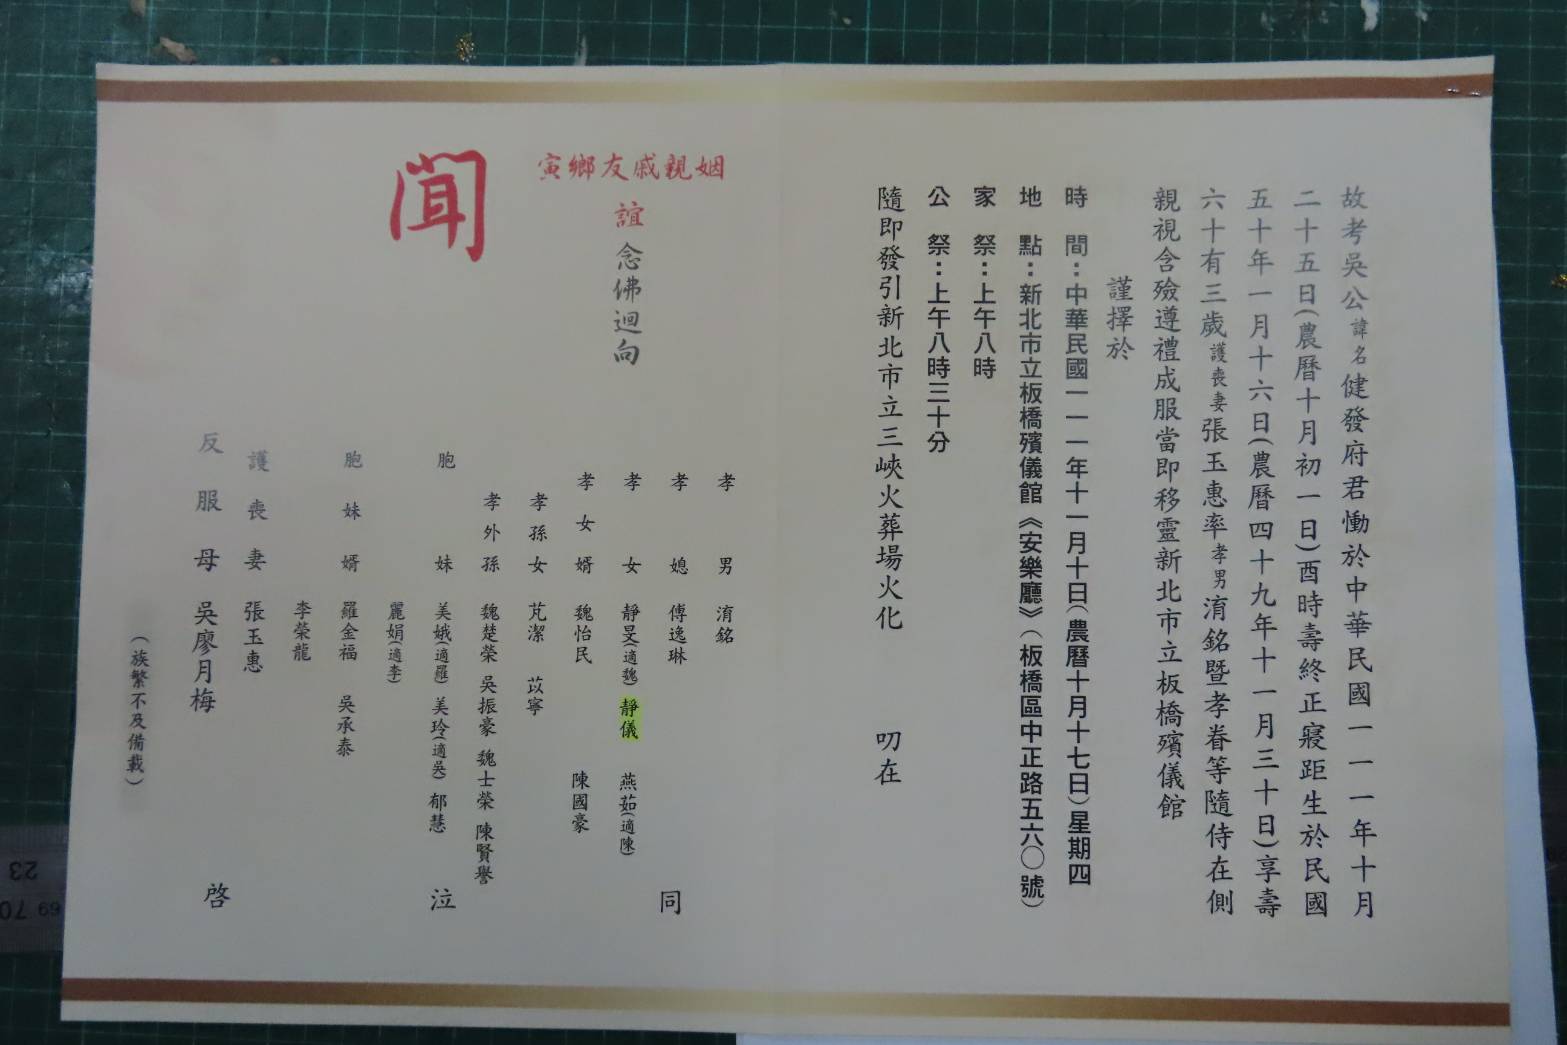 故考吳公諱名健發府君慟於中華民國一一一年十月
二十五日(農曆十月初一日)酉時壽終正寢距生於民國
五十年一月十六日(農曆四十九年十一月三十日)享壽
六十有三歲護喪妻張玉惠率孝男淯銘暨孝眷等隨侍在側
親視含殮遵禮成服當即移靈新北市立板橋殯儀館
謹擇於
時間:中華民國一一一年十一月十日(農曆十月十七日)星期四
地點:新北市立板橋殯儀館《安樂廳》(板橋區中正路五六〇號)
家祭:上午八時
公祭:上午八時三十分
隨即發引新北市立三峽火葬場火化 叨在
姻親戚友鄉寅
誼念佛迴向
聞
孝男 淯銘
孝媳 傅逸琳
孝女 靜旻(適魏) 靜儀 燕茹(適陳)
孝女婿 魏怡民 陳國豪
孝孫女 芃潔 苡寧
孝外孫 魏楚榮 吳振豪 魏士榮 陳賢譽
胞妹 美娥(適羅) 美玲(適吳) 郁慧
麗娟(適李)
胞妹婿 羅金福 吳承泰
李榮龍
護喪妻 張玉惠
反服母 吳廖月梅
同
泣
啓
(族繁不及備載)
23
70 69